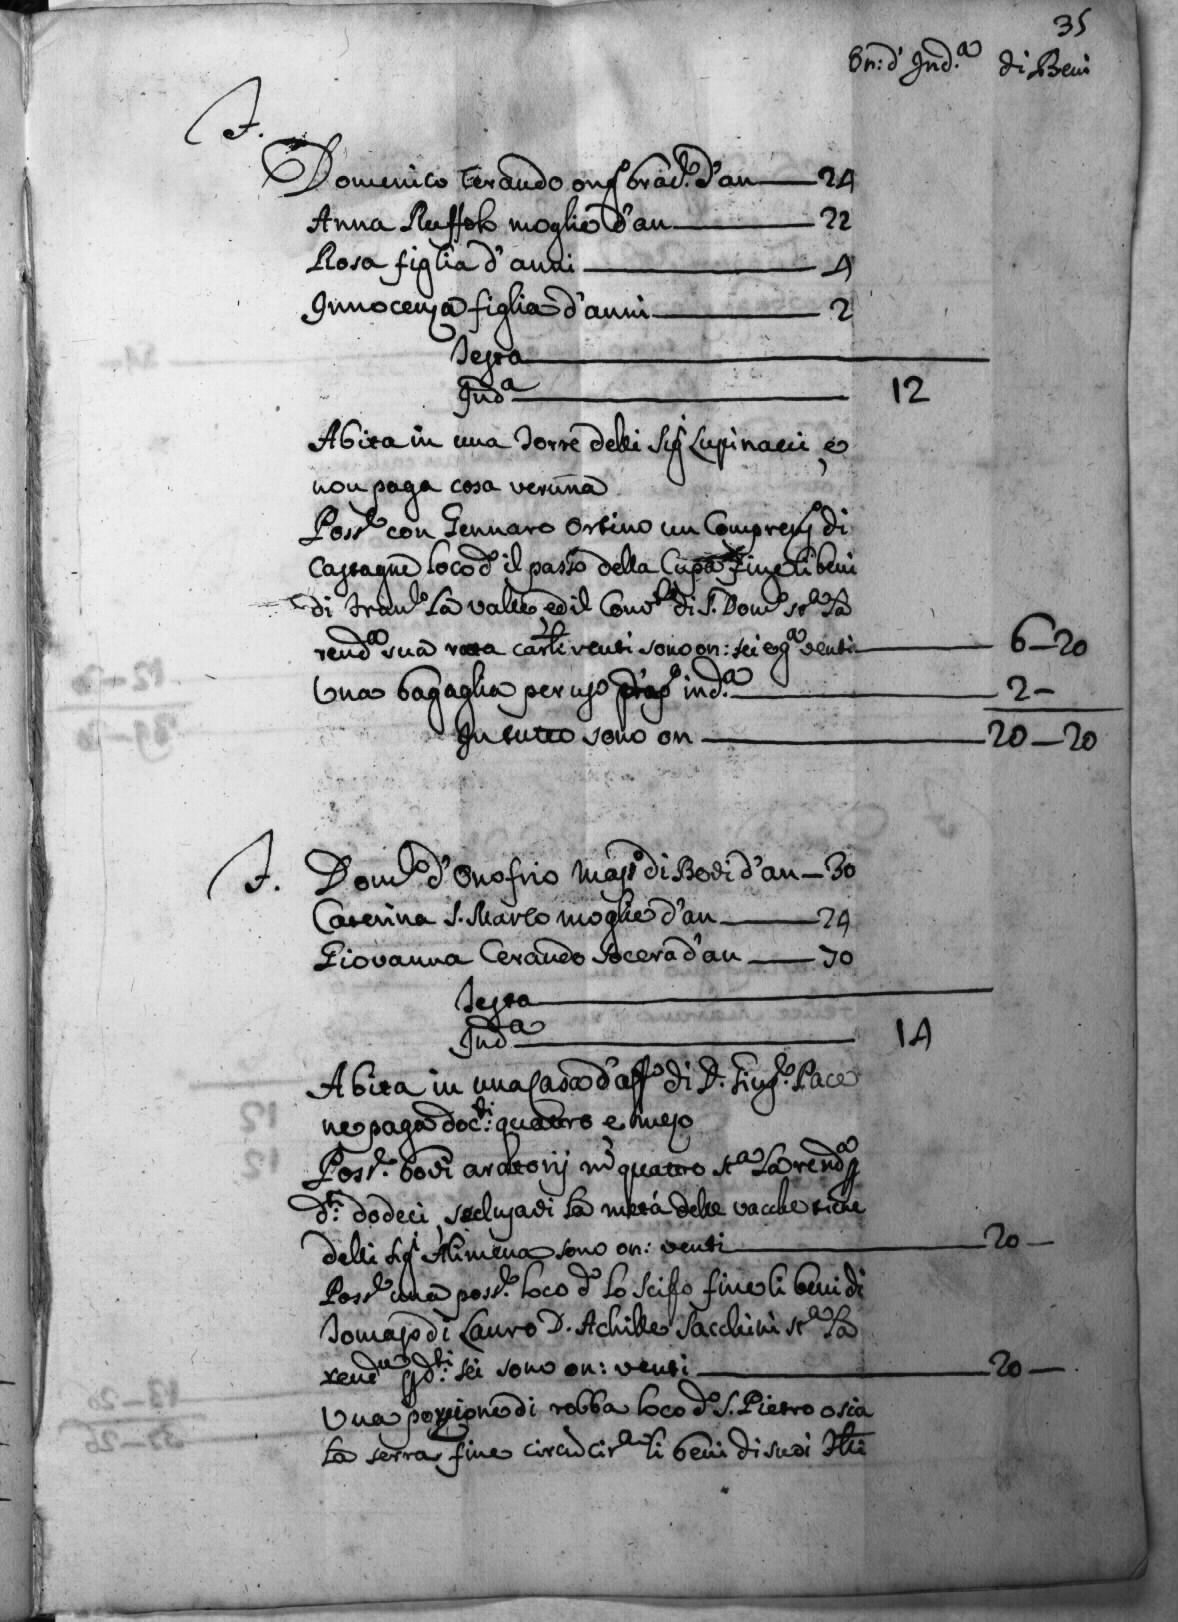 35
On: d' Ind.a di Beni
F.
Domenico Cerando brac.le d'an 24
Anna Ruffolo moglie d'an 22
Rosa figlia d'anni 4
Innocenza figlia d'anni 2
Testa
Ind.a 12
Abita in una Torre delli Sig.i Lupinacci, e
non paga cosa veruna
Poss.e con Gennaro Orsino un Compren. di
Castagne loco d.o il passo della Cupa fine li beni
di Fran.co La Valle, ed il Conv.to di S. Dom.co st.a la
rend.a sua rata carl.i venti sono on: sei e g.a venti 6-20
Una bagaglia per uso ind.a 2-
In tutto sono on 20-20
F. Dom.co d'Onofrio Mas.ro di Bovi d'an 30
Caterina S. Marco moglie d'an 24
Giovanna Cerando socera d'an 70
Testa
Ind.a 14
Abita in una Casa d'aff.o di D. Giuse.e Pace
ne paga doc.ti: quattro e mezo
Poss.e bovi aratorij n.o quattro st.a la rend.a
d.ti dodeci, seclusavi la metà delle vacche tiene
delli Sig.i Alimena sono on: venti 20-
Poss.e una poss.e loco d.o lo Sciffo fine li beni di
Tomaso di Lauro D. Achille Sacchini st.a la
rend.a d.ti: sei sono on: venti 20-
Una porzione di robba loco d.o S. Pietro o sia
la serra fine circumcir.a li beni di suoi